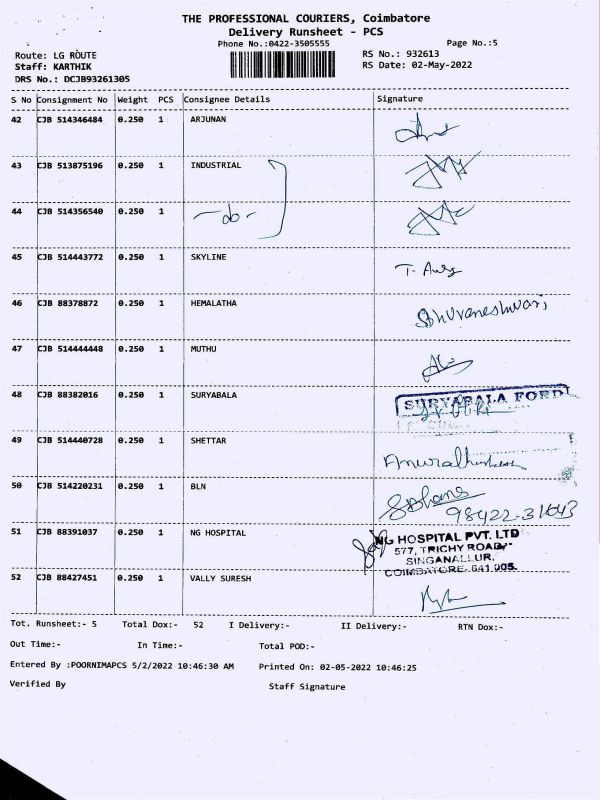 THE PROFESSIONAL COURIERS, Coimbatore
Delivery Runsheet - PCS
Phone No.:0422-3505555
Page No.:5
Route: LG ROUTE
RS No.: 932613
Staff: KARTHIK
RS Date: 02-May-2022
DRS No.: DCJB93261305
S No Consignment No Weight PCS Consignee Details Signature
42 CJB 514346484 0.250 1 ARJUNAN
43 CJB 513875196 0.250 1 INDUSTRIAL
44 CJB 514356540 0.250 1 -do-
45 CJB 514443772 0.250 1 SKYLINE
46 CJB 88378872 0.250 1 HEMALATHA Bhuvaneshwari
47 CJB 514444448 0.250 1 MUTHU
48 CJB 88382016 0.250 1 SURYABALA SURYABALA FORD
49 CJB 514440728 0.250 1 SHETTAR
50 CJB 514220231 0.250 1 BLN
51 CJB 88391037 0.250 1 NG HOSPITAL NG HOSPITAL PVT. LTD
577, TRICHY ROAD
SINGANALLUR,
COIMBATORE-641 005.
52 CJB 88427451 0.250 1 VALLY SURESH
Tot. Runsheet:- 5 Total Dox:- 52 I Delivery:- II Delivery:- RTN Dox:-
Out Time:- In Time:- Total POD:-
Entered By :POORNIMAPCS 5/2/2022 10:46:30 AM Printed On: 02-05-2022 10:46:25
Verified By Staff Signature